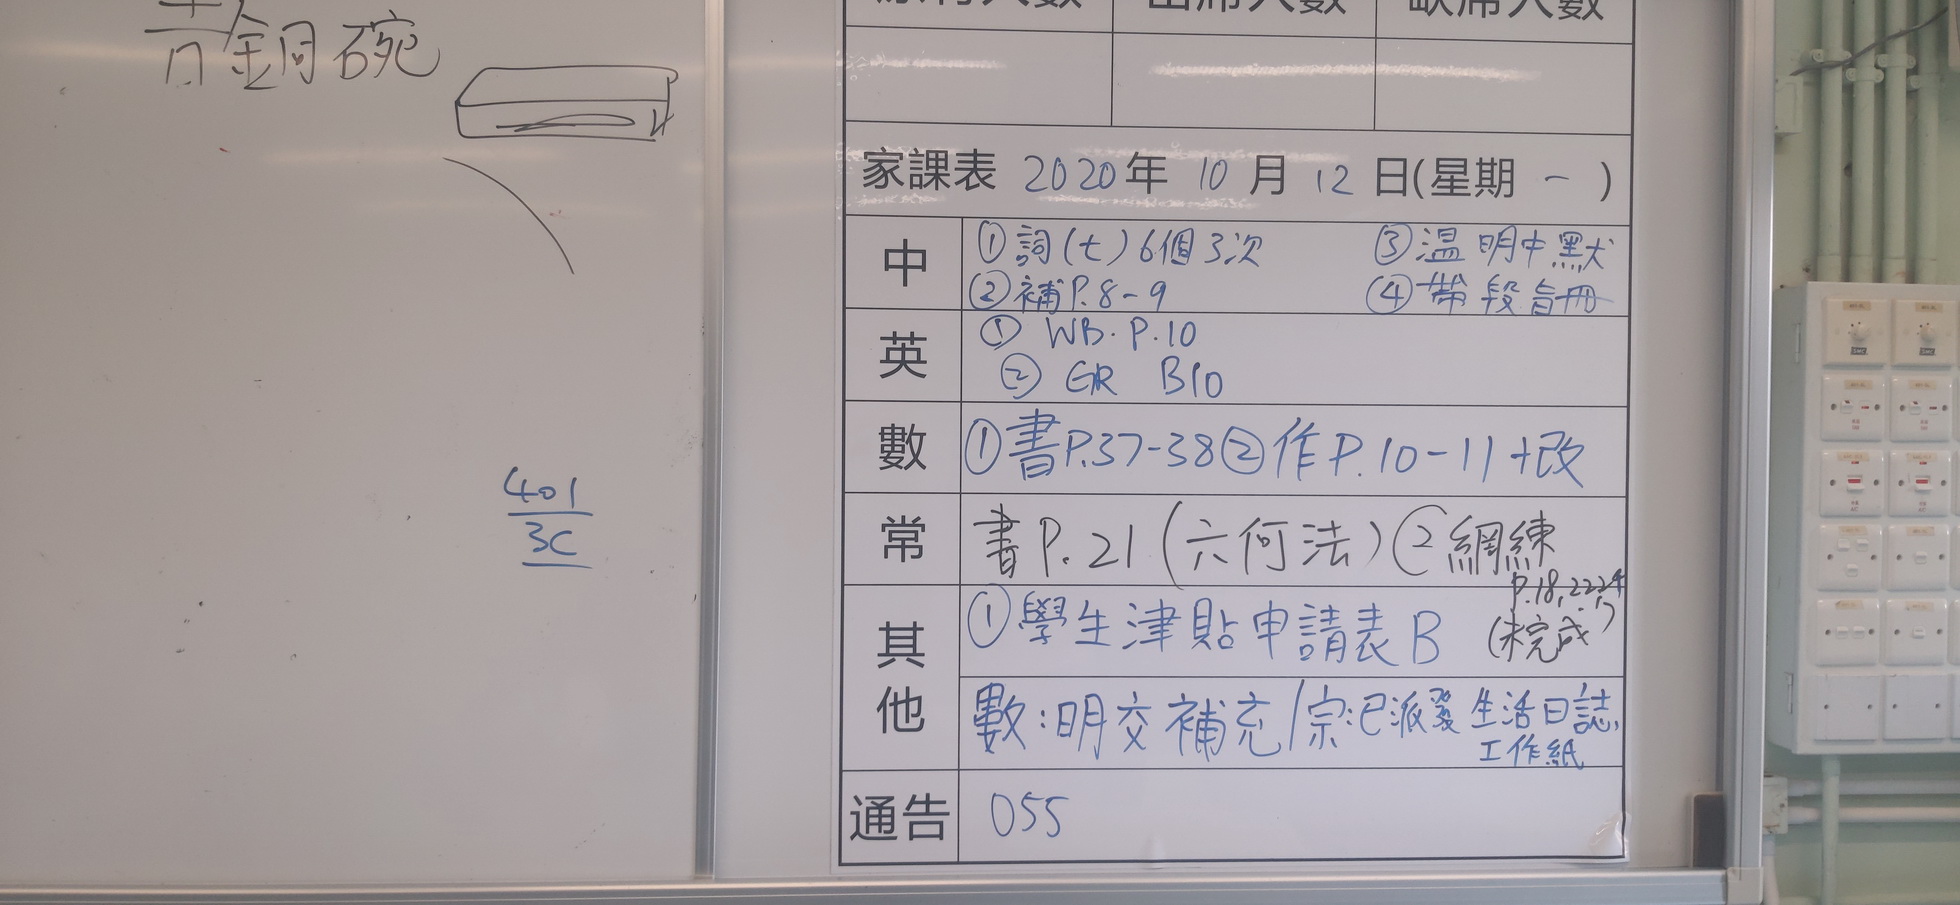 青銅碗
401
3C
原有人數 出席人數 缺席人數
家課表 2020年 10 月 12 日(星期 一 )
中 ①詞(七)6個3次 ③温明中默
②補P.8-9 ④帶段旨冊
英 ① WB.P.10
② GR B10
數 ①書P.37-38②作P.10-11+改
常 書P.21(六何法)②網練
P.18,22,24
(未完成)
其他 ①學生津貼申請表B
數:明交補充/宗:已派發生活日誌,
工作紙
通告 055